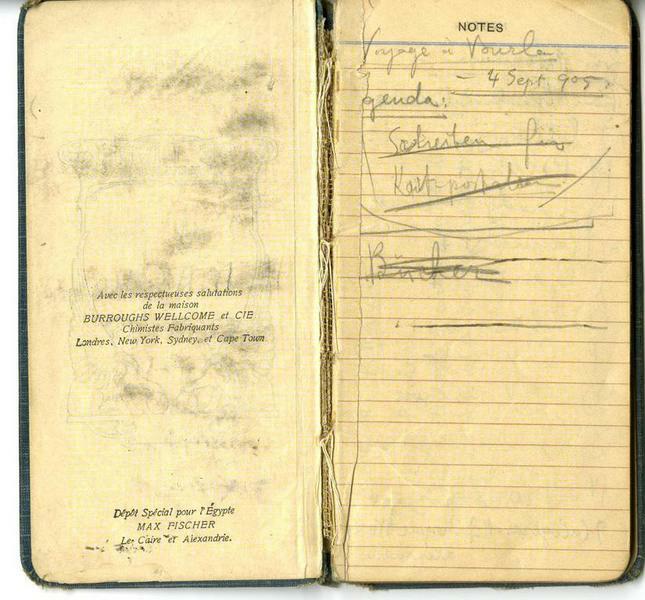 Avec les respectueuses salutations
de la maison
BURROUGHS WELLCOME et CIE
Chimistes Fabriquants
Londres, New York, Sydney, et Cape Town
Dépôt Spécial pour l'Égypte
MAX FISCHER
Le Caire et Alexandrie.
NOTES
Voyage à Vourla
- 4 Sept. 905.
genda:
für
Kart-postalen
Bücher